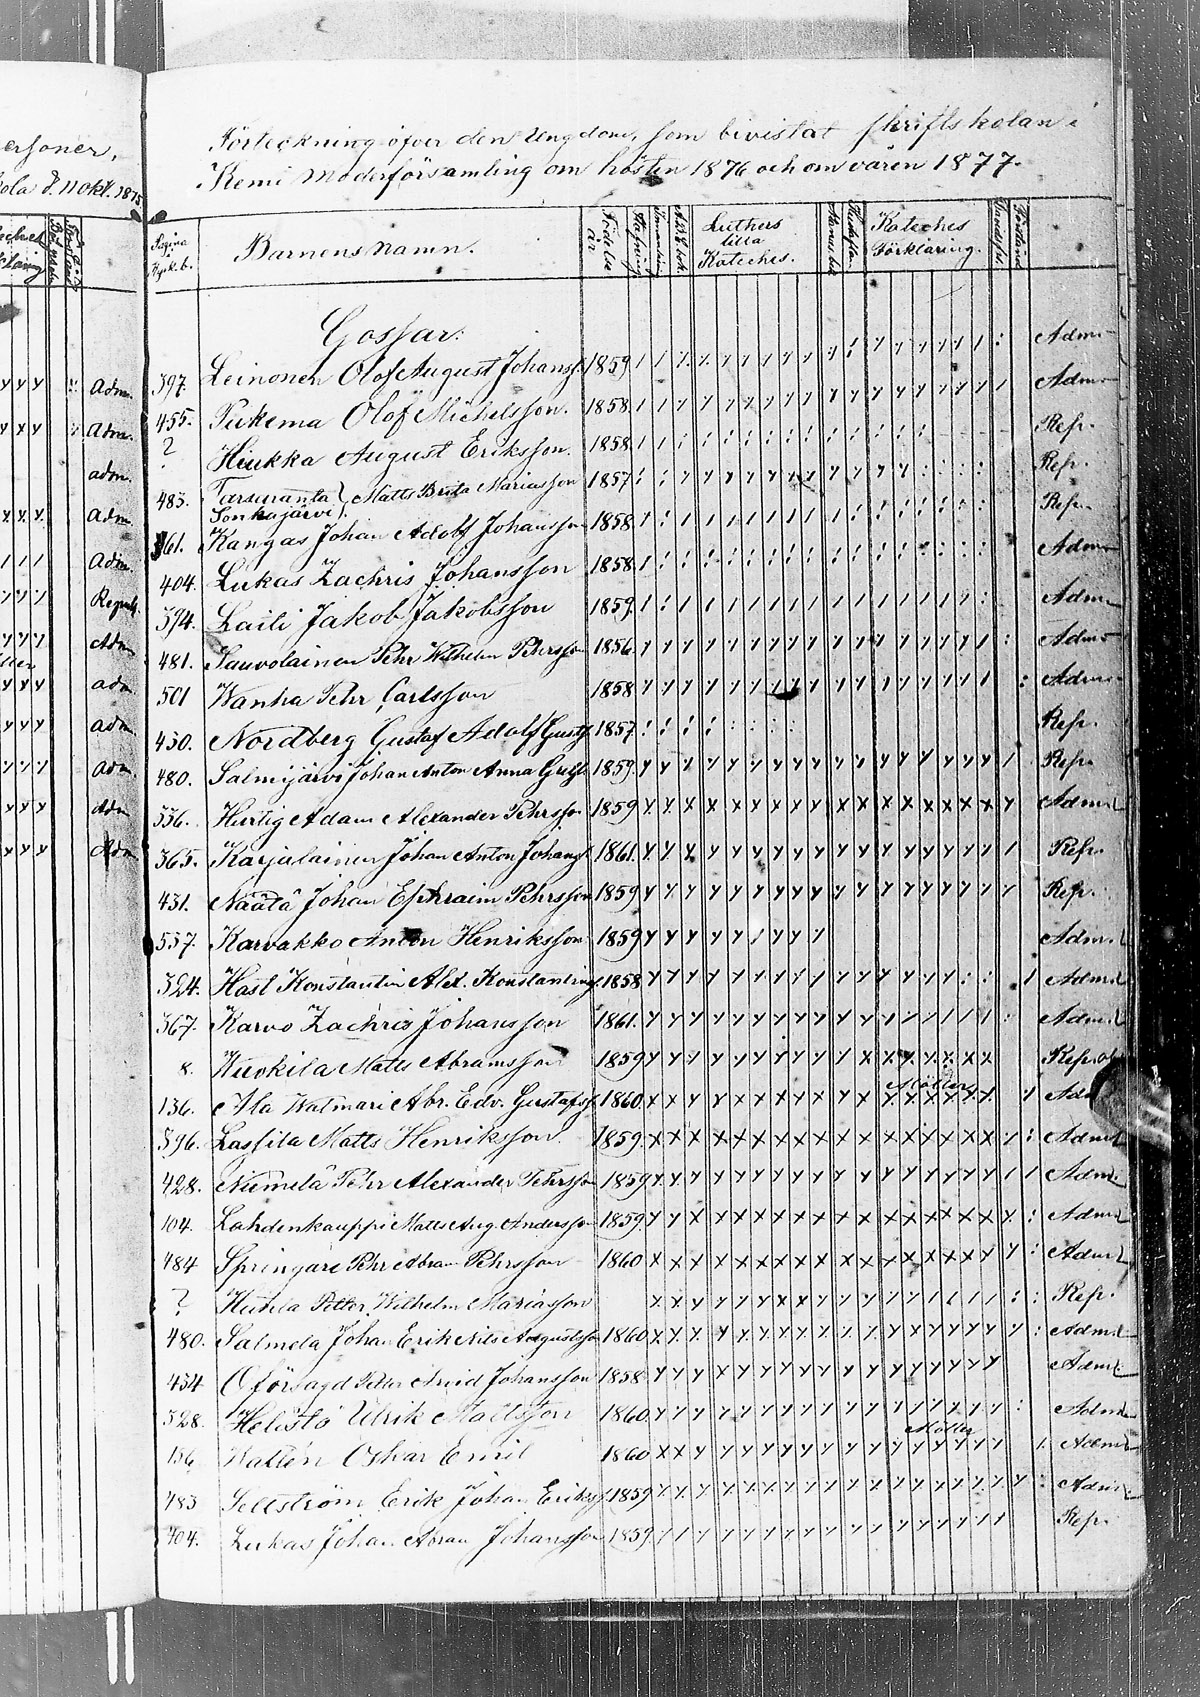 ersoner,
ola d. 11 okt. 1875
Adm.
Adm.
adm.
Adm
Adm.
Adm
adm
adm
Adm
Adm
Adm
Förteckning öfver den Ungdom, som bivistat skriftskolan i
Kemi Moderförsamling om hösten 1876 och om våren 1877.
Pagina i Kyrk.b. Barnens namn. Födelse år Luthers lilla Kateches. Kateches Förklaring.
Gossar:
397. Leinonen Olof August Johanss. 1859 Adm
455. Pukema Olof Michelsson. 1858 Adm
? Hiukka August Eriksson. 1858 Rep.
483. Tarsuranta Sonkajärvi } Matts Brita Mariasson 1857 Rep.
361. Kangas Johan Adolf Johansson 1858 Rep.
404. Lukas Zachris Johansson 1858 Adm
394. Laili Jakob Jakobsson 1859 Adm
481. Sauvolainen Pehr Wilhelm Pehrsson 1856 Adm
501 Wanha Pehr Carlsson 1858 Adm
430. Nordberg Gustaf Adolf Gustfs 1857 Rep.
480. Salmijärvi Johan Anton Anna Gretas 1859 Rep.
336. Hurtig Adam Alexander Pehrsson 1859 Adm
365. Karjalainen Johan Anton Johanss 1861 Rep.
431. Näätä Johan Ephraim Pehrsson 1859 Rep.
337. Karvakko Anton Henriksson 1859 Adm
324. Hast Konstantin Alex. Konstantins. 1858 Adm
367. Karvo Zachris Johansson 1861. Adm
8. Kuokila Matts Abramsson 1859 Reprob
136. Ala Watmari Abr. Edv. Gustafss. 1860 Möller Adm
396. Lassila Matts Henriksson. 1859. Adm
428. Niemelä Pehr Alexander Pehrsson 1859 Adm.
104. Lahdenkauppi Matts Aug. Andersson 1859. Adm
484 Springare Pehr Abram Pehrsson 1860 Adm
? Huhta Petter Wilhelm Mariasson Rep.
480. Salmela Johan Erik Nils Augustsson 1860 Adm
434 Oförsagd Petter Arvid Johansson 1858 Adm
328. Helistö Ulrik Mattsson 1860 Adm
136 Wallén Oskar Emil 1860 Möller Adm
483 Sellström Erik Johan Erikss. 1859 Adm
404. Lukas Johan Abram Johansson 1859. Rep.